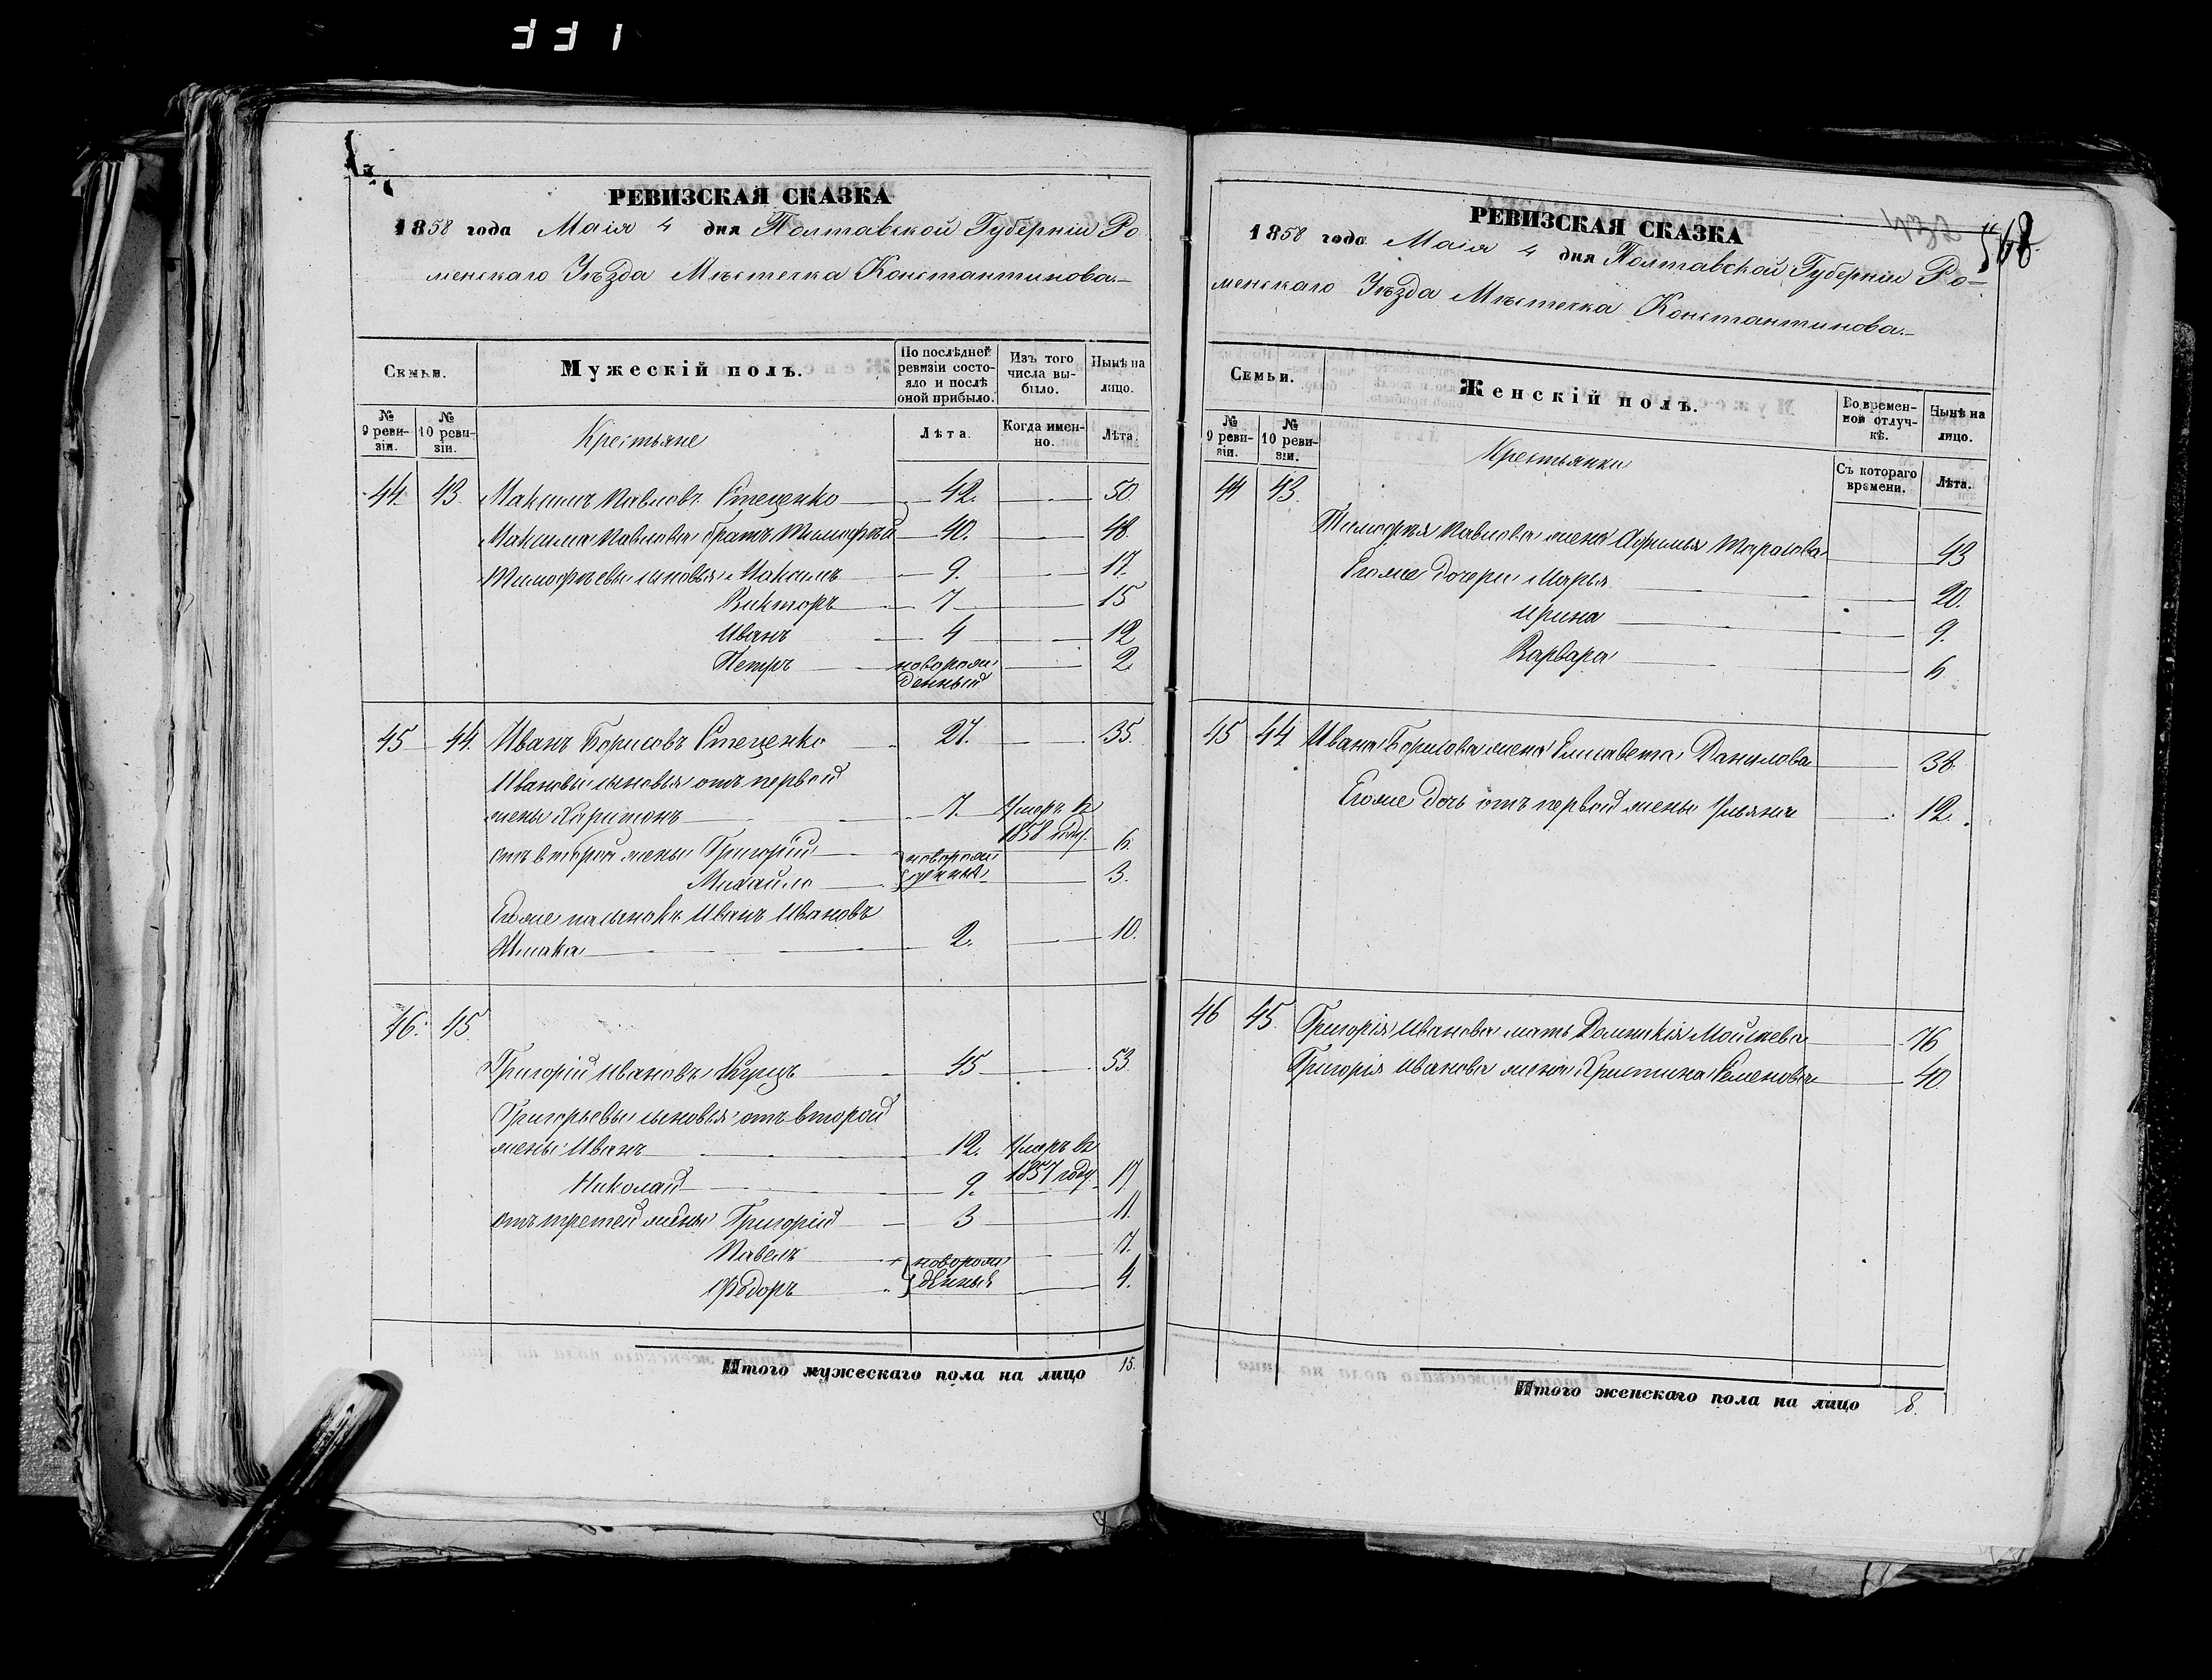 РЕВИЗСКАЯ СКАЗКА
1858 года Маія 4 дня Полтавской Губерніи Ро
менскаго Уѣзда Мѣстечка Константинова
Семьи.
Мужескій полъ.
По послѣдней ревизіи состояло и послѣ оной прибыло.
Изъ того числа выбыло.
Нынѣ на лицо.
№ 9 ревизіи.
№ 10 ревизіи.
Крестьяне
Лѣта.
Когда именно.
Лѣта.
44. 43. Максимъ Павловъ Стеценко 42. 50.
Максима Павлова братъ Тимофѣй 40. 48.
Тимофѣевы сыновья Максимъ 9. 17.
Викторъ 7 15
Иванъ 4 12
Петръ новорож 2.
денный
45 44. Иванъ Борисовъ Стеценко 27. 35.
Ивановы сыновья отъ первой
жены Харитонъ 7. Умеръ въ
1858 году.
отъ второй жены Григорій новорож 6.
Михайло денные 3.
Егоже пасынокъ Иванъ Ивановъ
2. 10.
46. 45.
Григорій Ивановъ 45 53.
Григорьевы сыновья отъ второй
жены Иванъ 12. Умеръ въ
1857 году
Николай 9. 17
отъ третей жены Григорій 3 11.
Павелъ новорож 7.
Ѳедоръ денные 4.
Итого мужескаго пола на лицо 15.
568
РЕВИЗСКАЯ СКАЗКА
1858 года Маія 4 дня Полтавской Губерніи Ро-
менскаго Уѣзда Мѣстечка Константинова
Семьи.
Женскій полъ.
Во временной отлучкѣ.
Нынѣ на лицо.
№ 9 ревизіи.
№ 10 ревизіи.
Крестьянки
Съ котораго времени.
Лѣта.
44 43.
Тимофѣя Павлова жена Афимья Тарасова 43
Егоже дочери Марья 20.
Ирина 9.
Варвара 6
45 44 Ивана Борисова жена Елисавета Данилова 38.
Егоже дочь отъ первой жены Ульяна 12.
46 45. Григорія Иванова мать Домникія Мойсеева 76
Григорія Иванова жена Христина Семенова 40.
Итого женскаго пола на лицо 8.